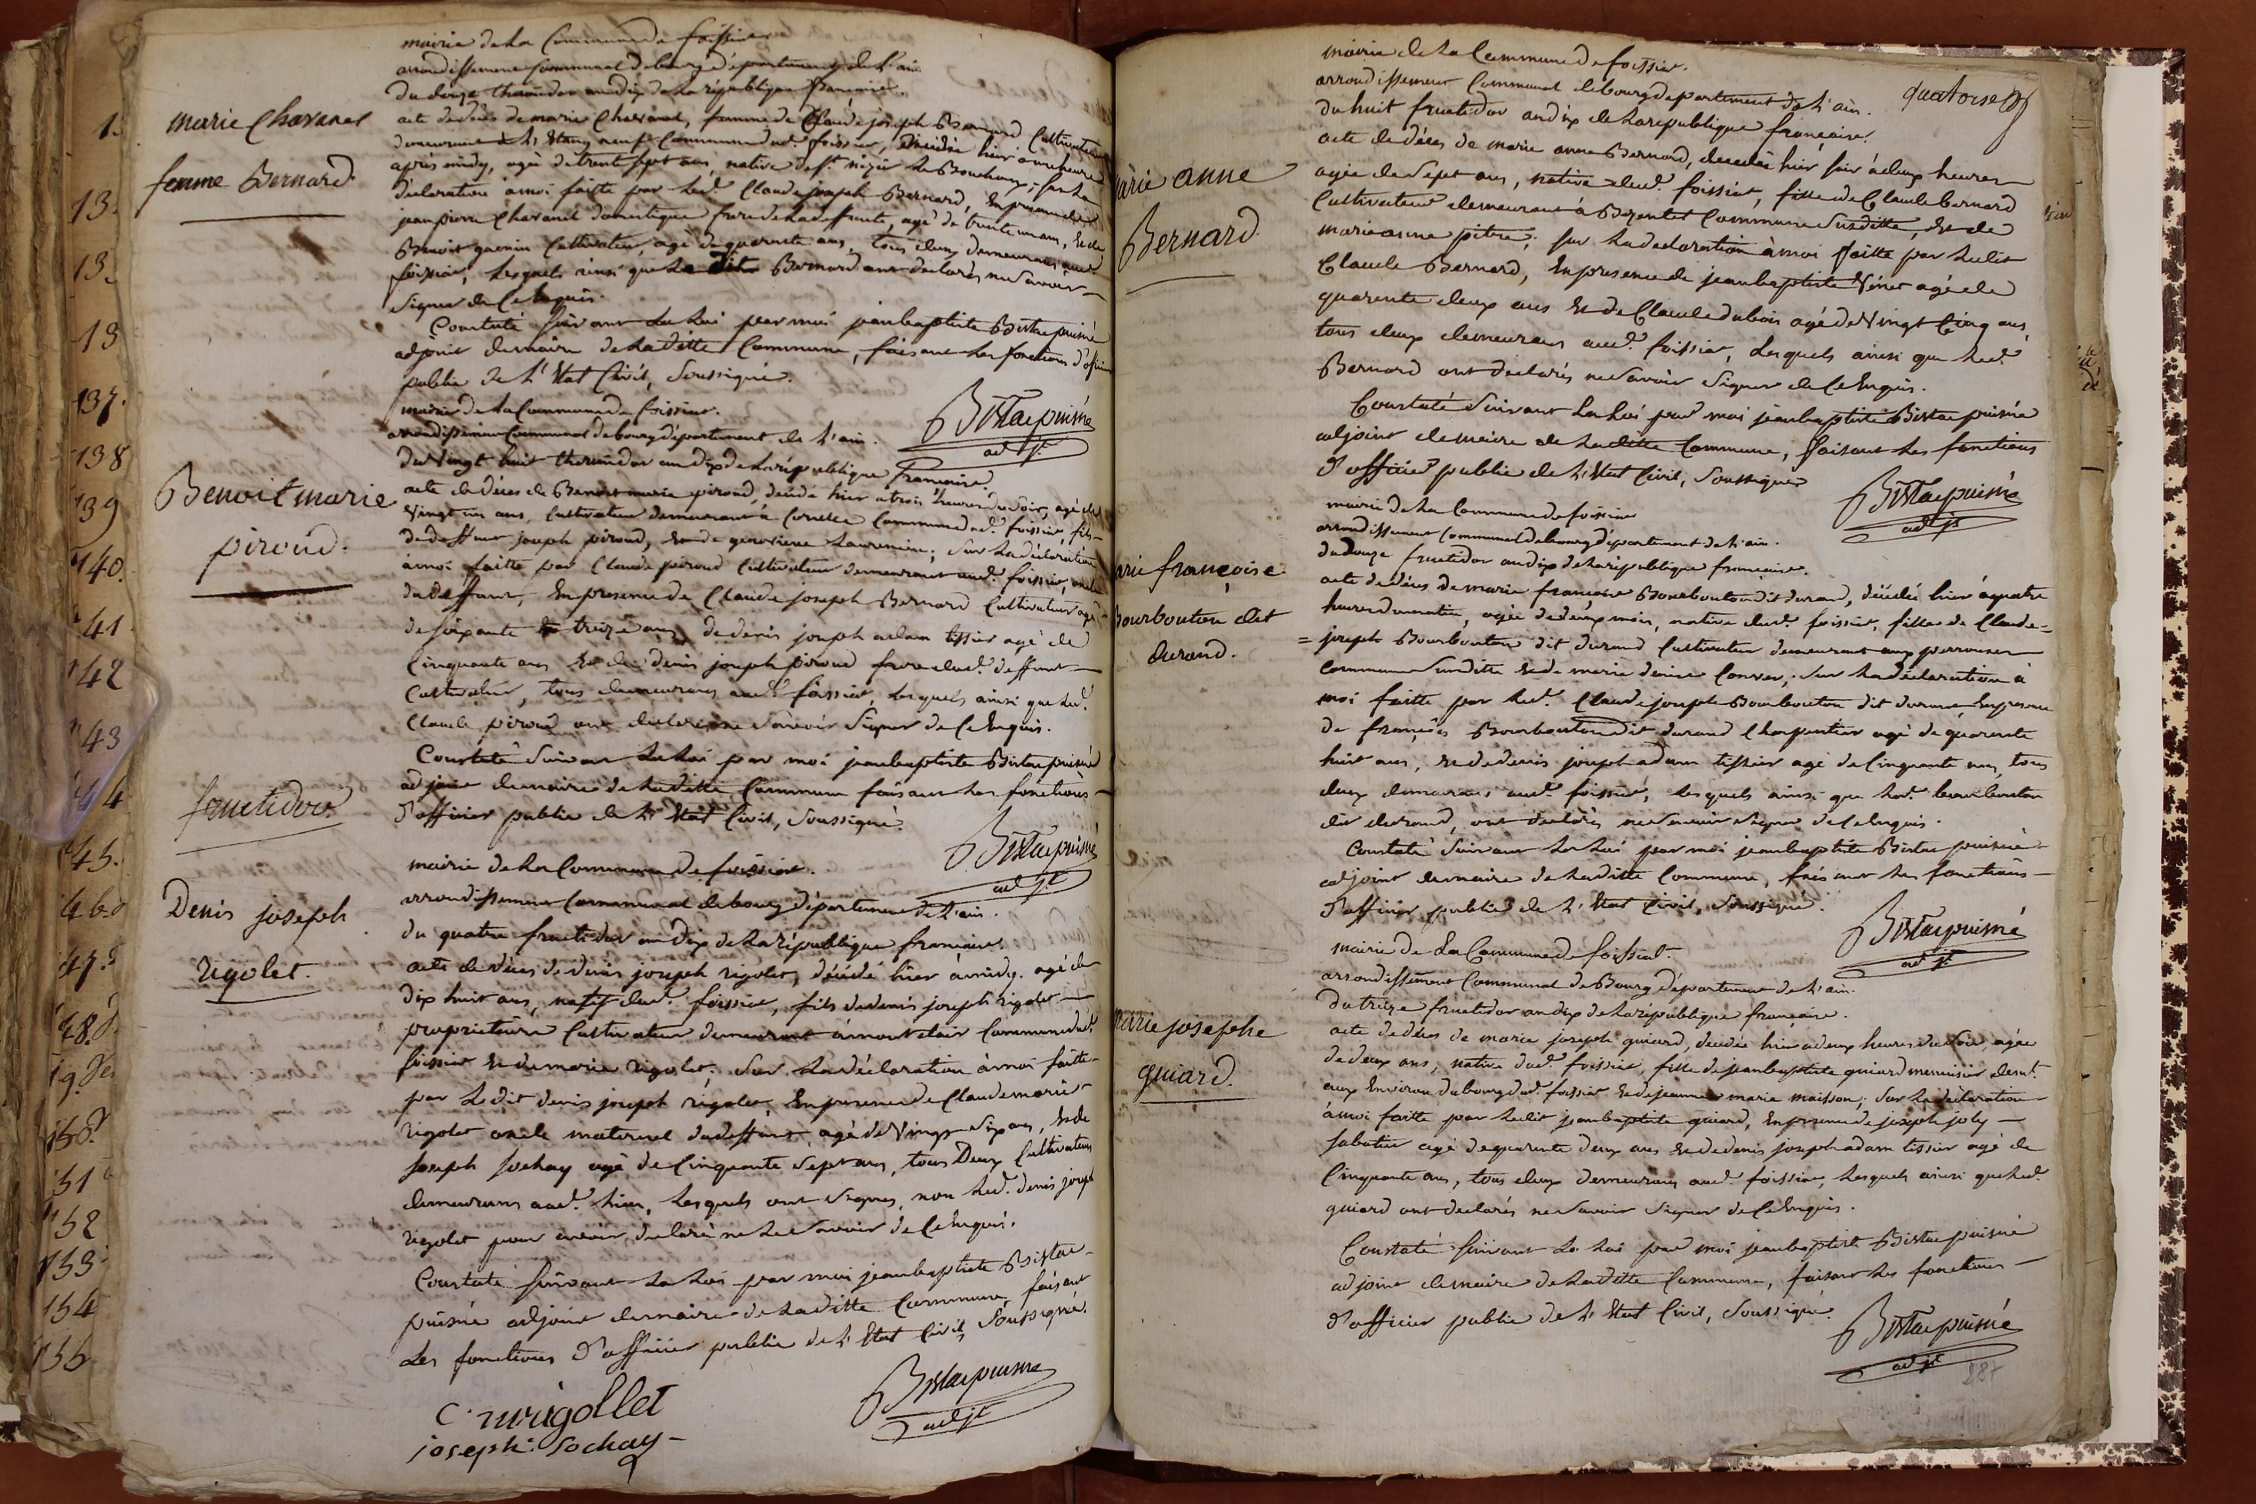 1.
13.
13.
13
137.
138
139
140.
41.
142
43
45.
47.
151
152
153
154
155
marie Chavanel
femme Bernard.
mairie de la Commune de foissiat
arrondissement Communal de bourg département de l'ain
du douze thermidor an dix de la république française.
acte de décès de marie Chavanel, femme de Claude joseph Bernard Cultivateur
demeurant à l'Etang neuf Commune dud. foissiat, décédée hier à une heure
après midy, agée de trente sept ans, native de st. nizier le Bouchoux; sur la
déclaration à moi faitte par led. Claude joseph Bernard, En présence de
jean pierre Chavanel domestique frere de la deffunte, agé de trente un ans, et de
Benoit guenin Cultivateur, agé de quarante ans, tous deux demeurans aud.
foissiat, lesquels ainsi que le dit Bernard ont déclarés ne savoir
signer de ce Enquis.
Constaté suivant la Loi par moi jean baptiste Bistac puisné
adjoint de maire de la ditte Commune, faisant les fonctions d'officier
public de l'Etat Civil, Soussigné.
Bistac puisné
adjt
Benoit marie
piroud.
mairie de la Commune de foissiat.
arrondissement Communal de bourg département de l'ain.
du vingt huit thermidor an dix de la république Française.
acte de décès de Benoit marie piroud, décédé hier à trois heures du soir, agé de
vingt un ans, Cultivateur demeurant à Cornelle Commune dud. foissiat, fils
de deffunt joseph piroud, et de genevieve Laurencin; sur la déclaration
à moi faitte par Claude piroud Cultivateur demeurant aud. foissiat, oncle
du deffunt, En présence de Claude joseph Bernard Cultivateur agé
de soixante treize ans, de denis joseph adam tissier agé de
Cinquante ans et de denis joseph piroud frere dud. deffunt
Cultivateur, tous demeurans aud. foissiat, lesquels ainsi que led.
Claude piroud ont déclarés ne savoir signer de ce Enquis.
Constaté suivant la Loi par moi jean baptiste Bistac puisné
adjoint de maire de la ditte Commune faisant les fonctions
d'officier public de l'Etat Civil, Soussigné.
Bistac puisné
adjt
fructidor.
Denis joseph
rigolet.
mairie de la Commune de foissiat.
arrondissement Communal de bourg département de l'ain.
du quatre fructidor an Dix de la république française.
acte de décès de denis joseph rigolet, décédé hier à midy, agé de
dix huit ans, natif dud. foissiat, fils de denis joseph rigolet
proprietaire Cultivateur demeurant à montclair Commune dud.
foissiat et de marie rigolet; Sur la déclaration à moi faitte
par le dit denis joseph rigolet, En présence de Claude marie
rigolet oncle maternel du deffunt, agé de vingt six ans, et de
joseph Sochay agé de Cinquante Sept ans, tous Deux Cultivateurs
demeurans aud. lieu, lesquels ont signés, non led. denis joseph
rigolet pour avoir déclaré ne le savoir de ce Enquis.
Constaté suivant la Loi par moi jean baptiste Bistac
puisné adjoint de maire de la ditte Commune, faisant
les fonctions d'officier public de l'Etat Civil, Soussigné.
Bistac puisné
adjt
C. m rigollet
joseph. Sochay
quatorse
arie anne
Bernard
mairie de la Commune de foissiat.
arrondissement Communal de bourg département de l'ain.
du huit fructidor an dix de la république française.
acte de décès de marie anne Bernard, décédée hier soir à deux heures
agée de Sept ans, native dud. foissiat, fille de Claude bernard
Cultivateur demeurant à Bezentet Commune Susditte, et de
marie anne pitre; sur la déclaration à moi faitte par ledit
Claude Bernard, En présence de jean baptiste Vinet agé de
quarente deux ans et de Claude dubois agé de Vingt Cinq ans,
tous deux demeurans aud. foissiat, Lesquels ainsi que led.
Bernard ont déclarés ne savoir signer de ce Enquis.
Constaté Suivant la Loi par moi jean baptiste Bistac puisné
adjoint de maire de la ditte Commune, faisant les fonctions
d'officier public de l'Etat Civil, Soussigné
Bistac puisné
adjt
arie françoise
Bourbouton dit
durand.
mairie de la Commune de foissiat
arrondissement Communal de bourg département de l'ain.
du douze fructidor an dix de la république française.
acte de décès de marie françoise Bourbouton dit durand, décédée hier à quatre
heures du matin, agée de deux mois, native dud. foissiat, fille de Claude=
=joseph Bourbouton dit durand Cultivateur demeurant aux perrouses
Commune Susditte et de marie denise Convers; sur la déclaration à
moi faitte par led. Claude joseph Bourbouton dit durand, En présence
de françois Bourbouton dit durand Charpentier agé de quarente
huit ans, et de denis joseph adam tissier agé de Cinquante ans, tous
deux demeurans aud. foissiat, lesquels ainsi que led. bourbouton
dit durand, ont déclarés ne savoir signer de ce Enquis.
Constaté suivant la Loi par moi jean baptiste Bistac puisné
adjoint de maire de la ditte Commune, faisant les fonctions
d'officier public de l'Etat Civil, Soussigné.
Bistac puisné
adjt
arie josephe
guiard.
mairie de La Commune de foissiat.
arrondissement Communal de Bourg département de l'ain.
du treize fructidor an dix de la république française.
acte de décès de marie joseph guiard, décédée hier à deux heures du soir, agée
de deux ans, native dud. foissiat, fille de jean baptiste guiard menuisier demt.
aux Environ du bourg dud. foissiat et de jeanne marie maisson; sur la déclaration
à moi faitte par ledit jean baptiste guiard, En présence de joseph joly
sabotier agé de quarente deux ans et de denis joseph adam tissier agé de
Cinquante ans, tous deux demeurans aud. foissiat, lesquels ainsi que led.
guiard ont déclarés ne savoir signer de ce Enquis.
Constaté suivant la Loi par moi jean baptiste Bistac puisné
adjoint de maire de la ditte Commune, faisant les fonctions
d'officier public de l'Etat Civil, Soussigné.
Bistac puisné
adjt